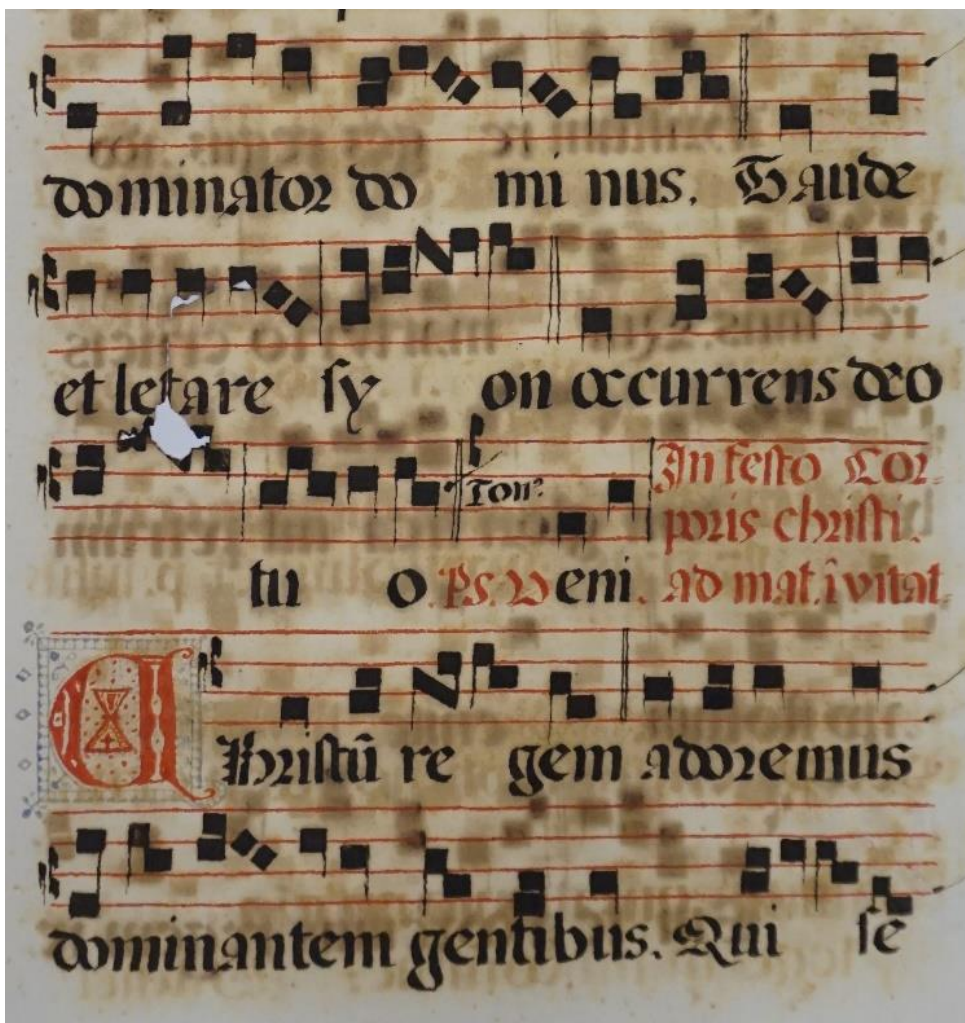 dominator do mi nus. Gaude
et letare sy on occurrens deo
tu o. Ps. Veni. Ton9
In festo Cor-
poris christi.
ad mat. īvitat.
Christū re gem adoremus
dominantem gentibus. Qui se